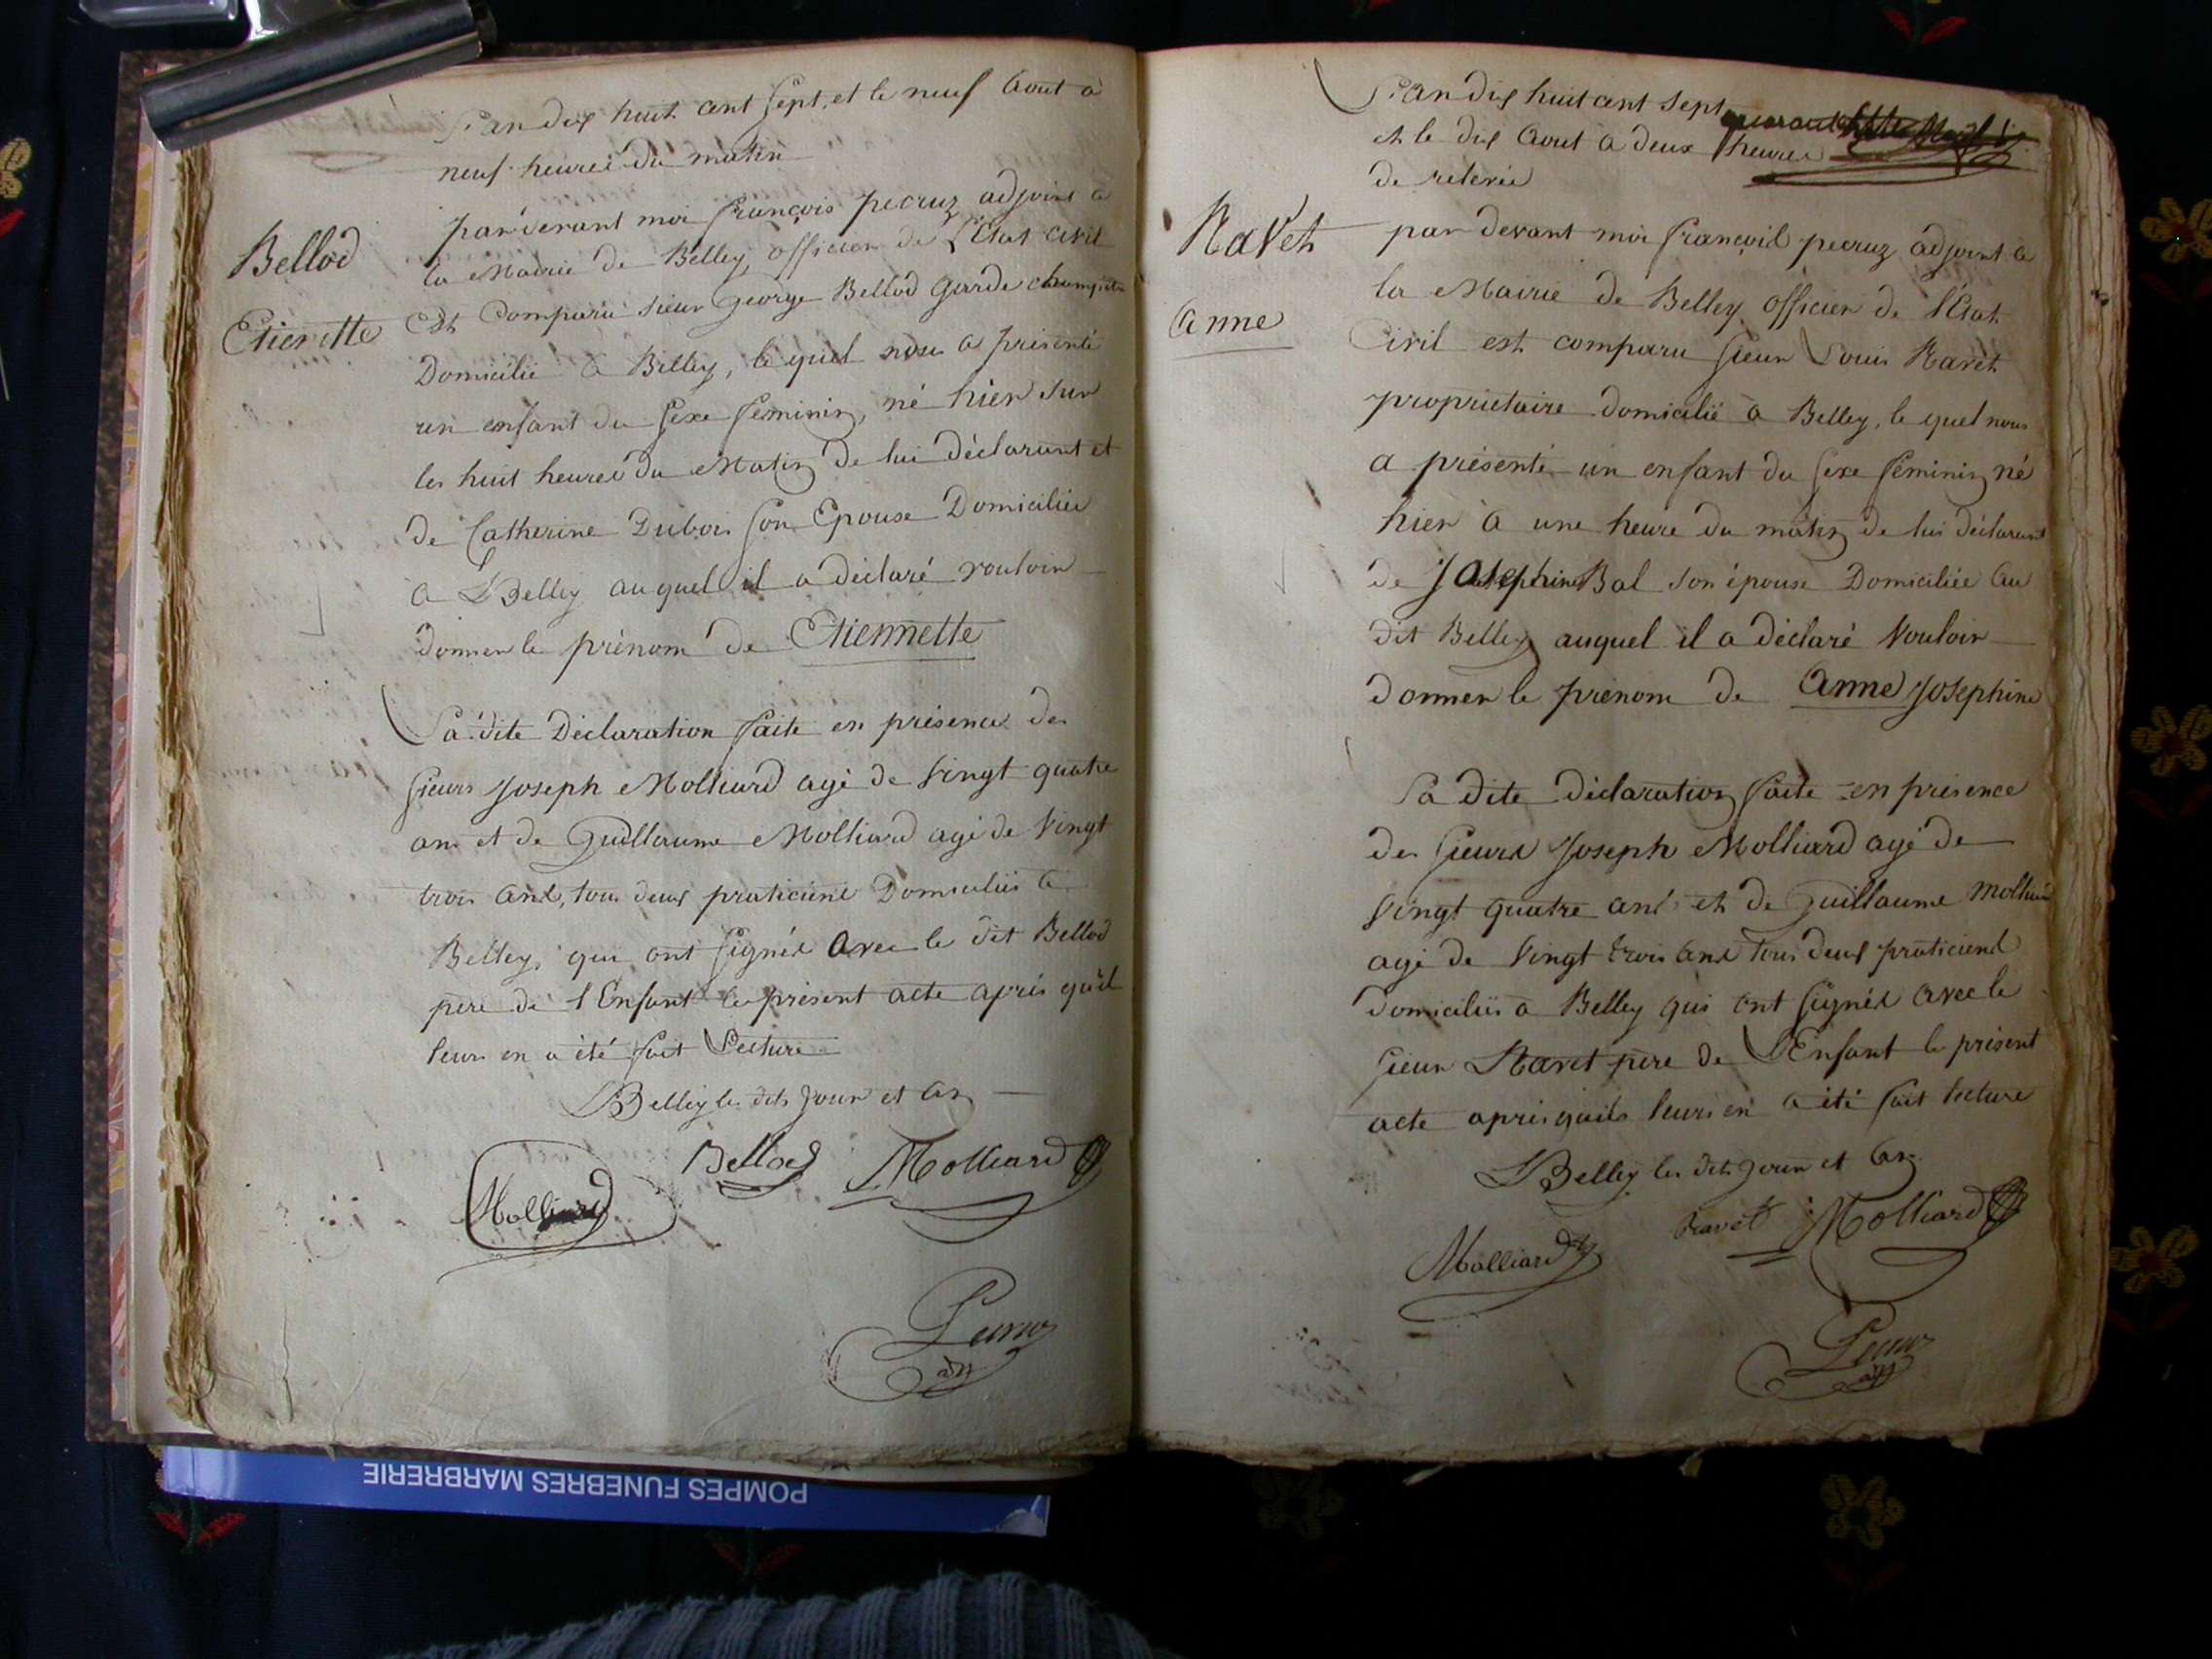 L'an dix huit cent sept, et le neuf Aout à
neuf heures du matin
Bellod
Etienette
par devant moi françois pecruz adjoint a
la Mairie de Belley, officier de L'Etat civil
Est Comparu sieur george Bellod garde champetre
Domicilié a Belley, le quel nous a présenté
un enfant du sexe feminin, né hier sur
les huit heures du Matin de lui déclarant et
de Catherine Dubois son Epouse Domiciliée
a Belley auquel il a déclaré vouloir
donner le prénom de Etiennette
La dite Déclaration faite en présence des
sieurs Joseph Molliard agé de vingt quatre
ans et de Guillaume Molliard agé de vingt
trois ans, tous deux praticiens Domiciliés a
Belley, qui ont signés avec le dit Bellod
père de l'Enfant le présent acte après qu'il
leurs en a été fait Lecture
Belley les dits jour et an
Molliard Bellod Molliard
Pecruz
adj
L'an dix huit cent sept
et le dix Aout à deux heures
de relevée
Ravet
Anne
par devant moi françois pecruz adjoint à
la Mairie de Belley officier de l'Etat
Civil est comparu sieur Louis Ravet
propriétaire domicilié à Belley, le quel nous
a présenté un enfant du sexe feminin né
hier à une heure du matin de lui déclarant
de Josephine Bal son épouse Domiciliée au
dit Belley auquel il a déclaré vouloir
donner le prénom de Anne Josephine
La dite déclaration faite en présence
des sieurs Joseph Molliard agé de
vingt quatre ans et de Guillaume Molliard
agé de vingt trois ans tous deux praticiens
domiciliés à Belley qui ont signés avec le
sieur Ravet père de L'Enfant le présent
acte après qu'ils leurs en a été fait lecture
Belley les dits jour et an
Molliard Ravet Molliard
Pecruz
adj
POMPES FUNEBRES MARBRERIE